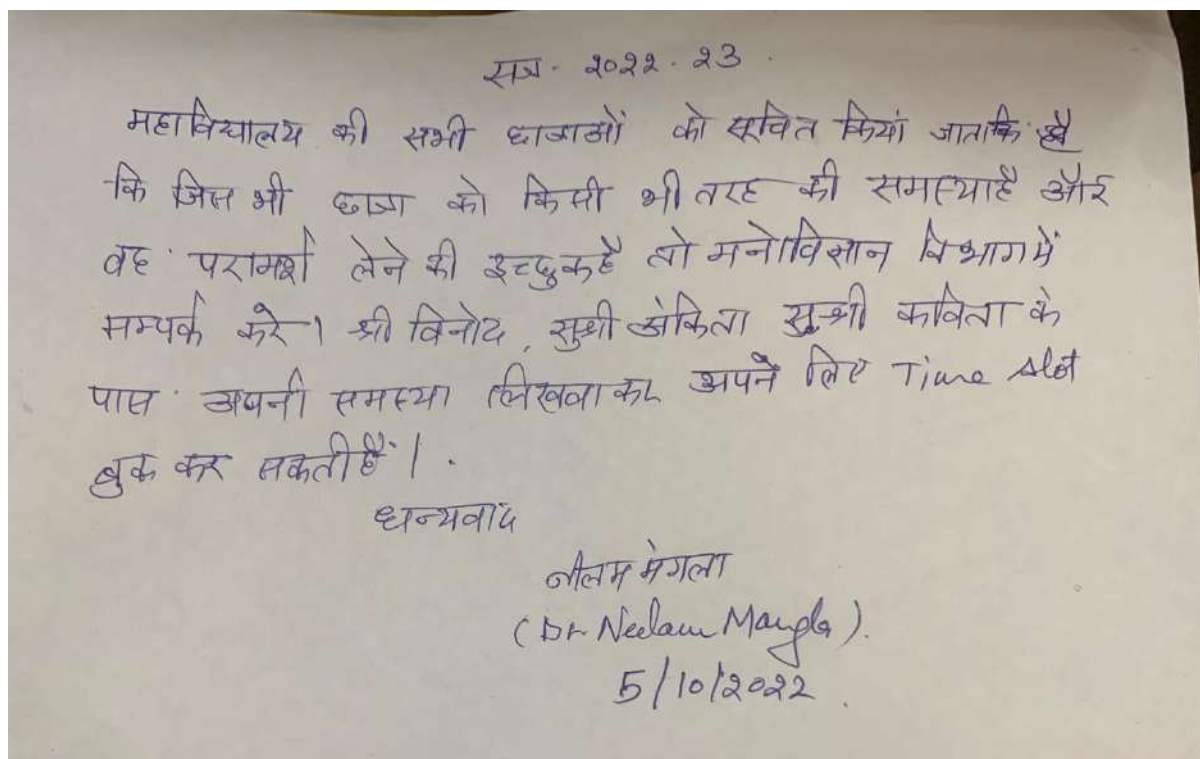 सत्र - २०२२ - २३ .
महाविद्यालय की सभी छात्राओं को सूचित किया जाता है
कि जिस भी छात्रा को किसी भी तरह की समस्या है और
वह परामर्श लेने की इच्छुक है तो मनोविज्ञान विभाग में
सम्पर्क करे । श्री विनोद, सुश्री अंकिता सुश्री कविता के
पास अपनी समस्या लिखवा कर अपने लिए Time slot
बुक कर सकती हैं ।
धन्यवाद
नीलम मंगला
(Dr. Neelam Mangla).
5/10/2022.